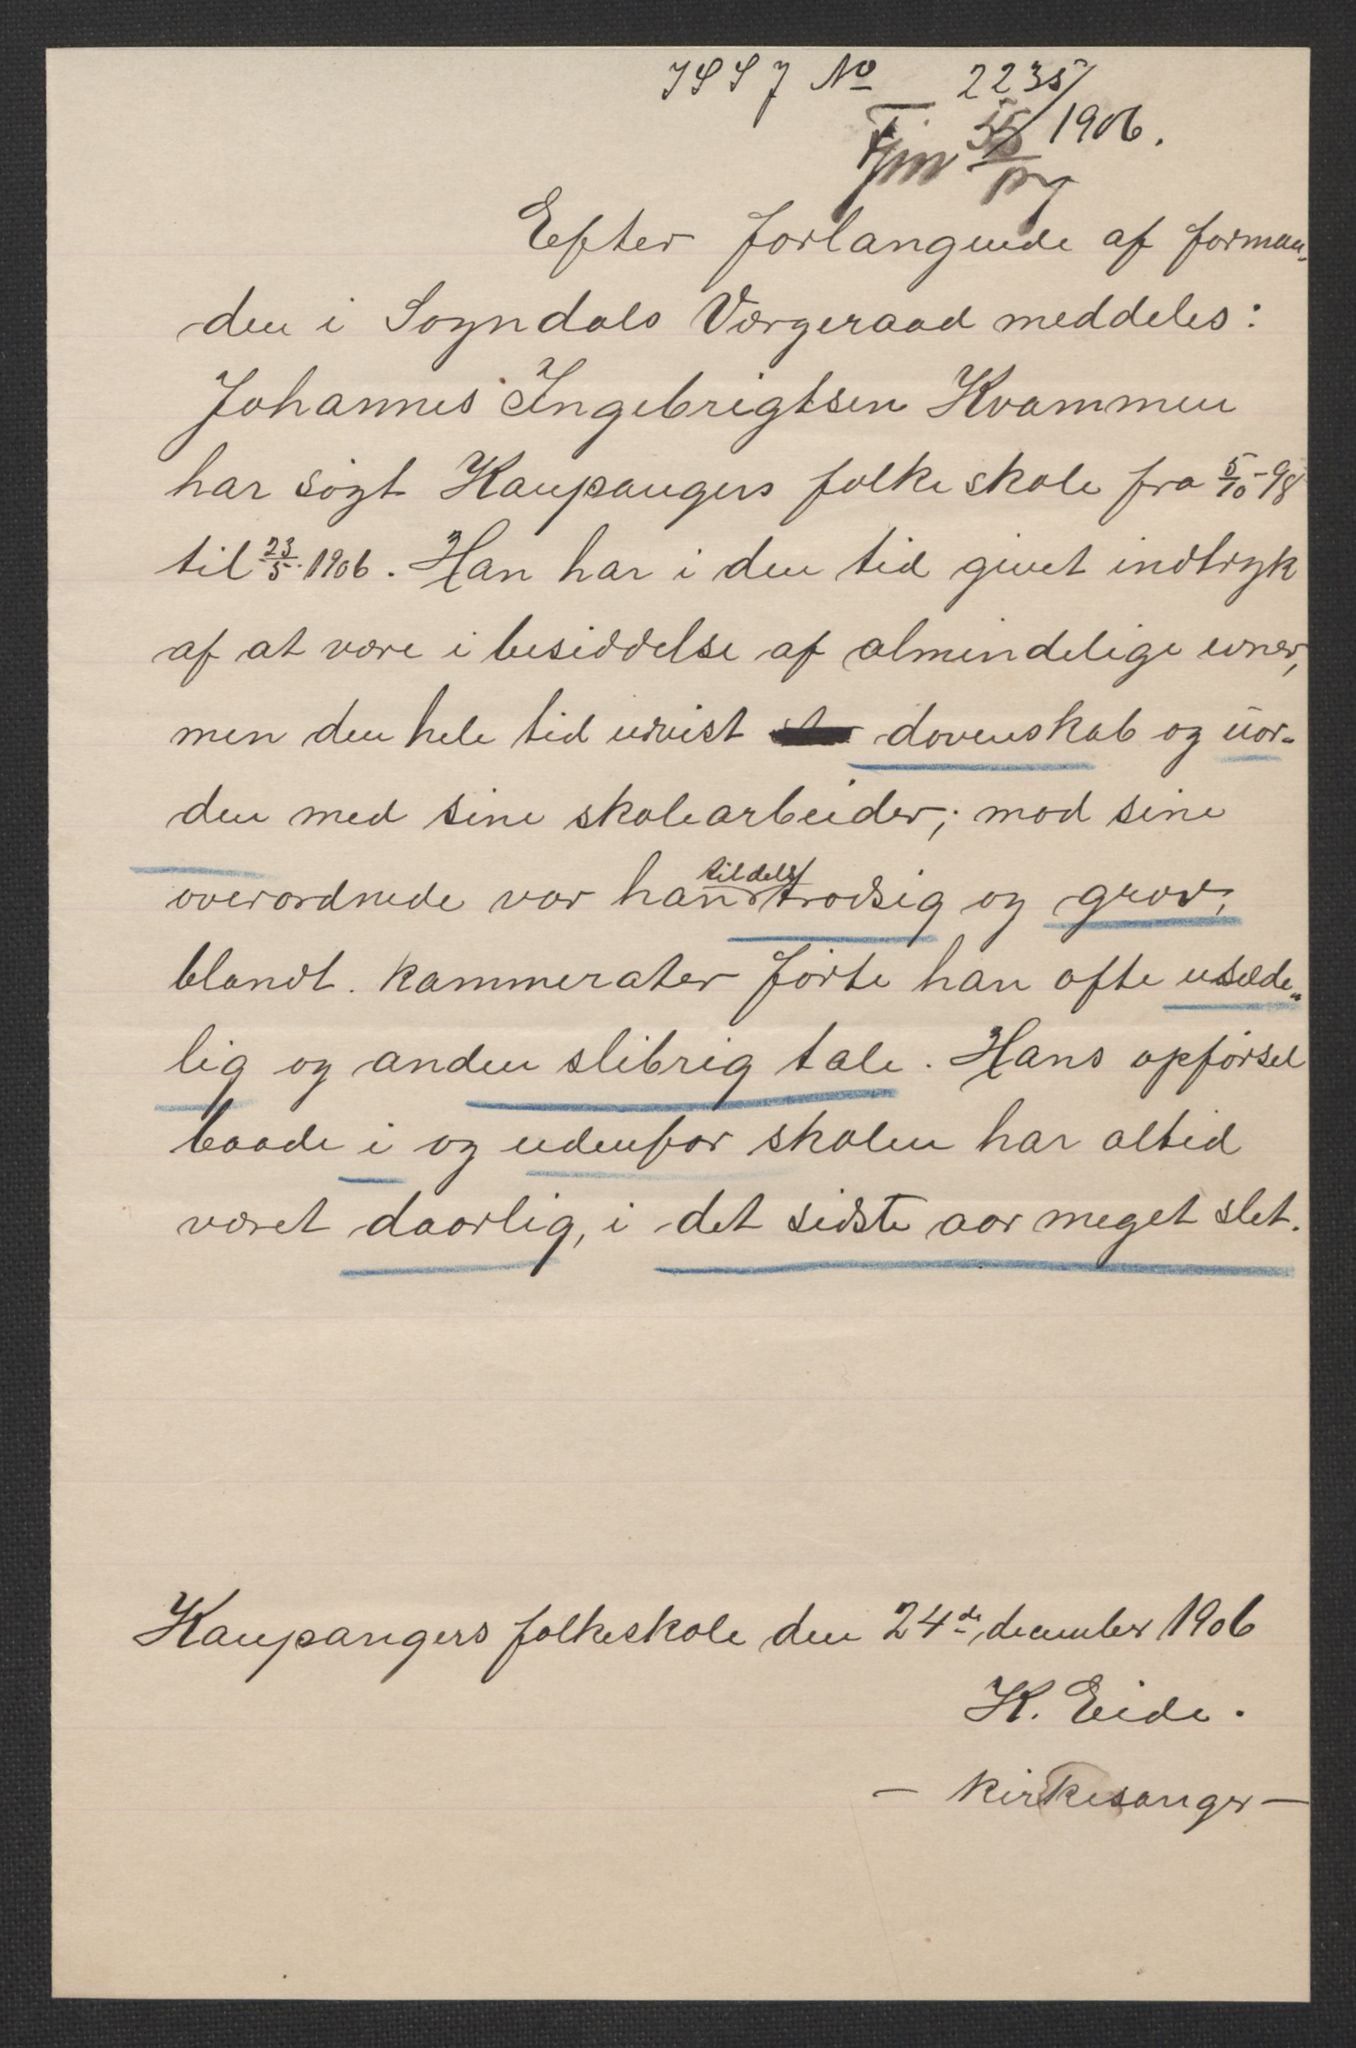 No 2235/
1906.
Efter forlangende af forman-
den i Sogndals Værgeraad meddeles:
Johannes Ingebrigtsen Kvammen
har søgt Kaupangers folkeskole fra 5/10-98
til 23/5.1906. Han har i den tid givet indtryk
af at være i besiddelse af almindelige evner,
men den hele tid udvist dovenskab og uor-
den med sine skolearbeider; mod sine
overordnede var han tildels trodsig og grov,
blandt kammerater førte han ofte usæde-
lig og anden slibrig tale. Hans opførsel
baade i og udenfor skolen har altid
været daarlig, i det sidste aar meget slet.
Kaupangers folkeskole den 24de december 1906
K. Eide.
- kirkesanger -